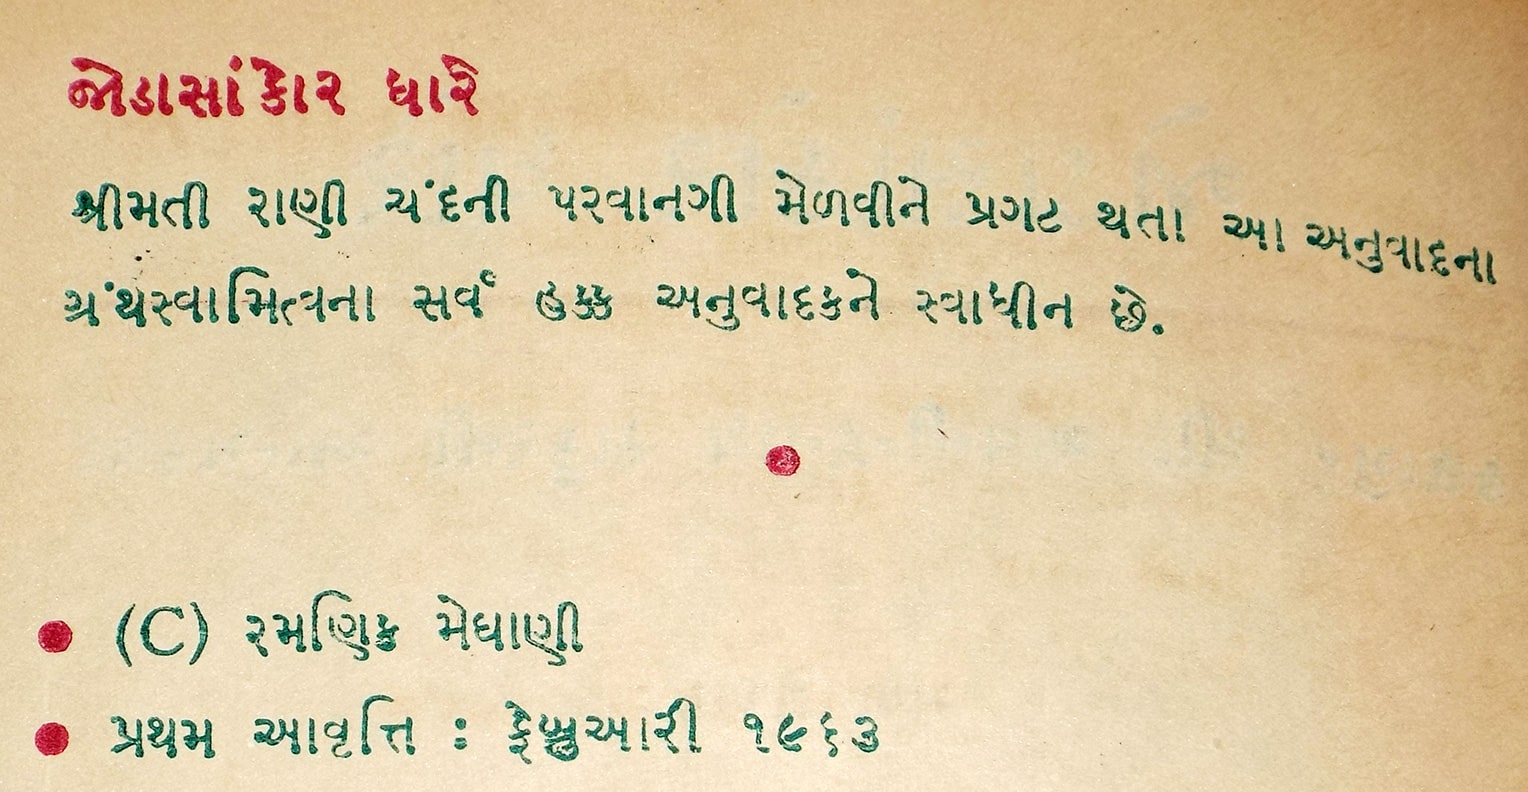 જોડાસાંકોર ધારે
શ્રીમતી રાણી ચંદની પરવાનગી મેળવીને પ્રગટ થતા આ અનુવાદના
ગ્રંથસ્વામિત્વના સર્વ હક્ક અનુવાદકને સ્વાધીન છે.
(C) રમણિક મેઘાણી
પ્રથમ આવૃત્તિ : ફેબ્રુઆરી ૧૯૬૩